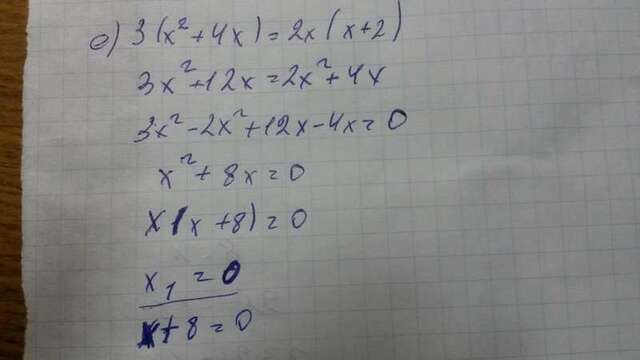 e) 3(x²+4x)=2x(x+2)
3x²+12x=2x²+4x
3x²-2x²+12x-4x=0
x²+8x=0
x(x+8)=0
x₁=0
x+8=0